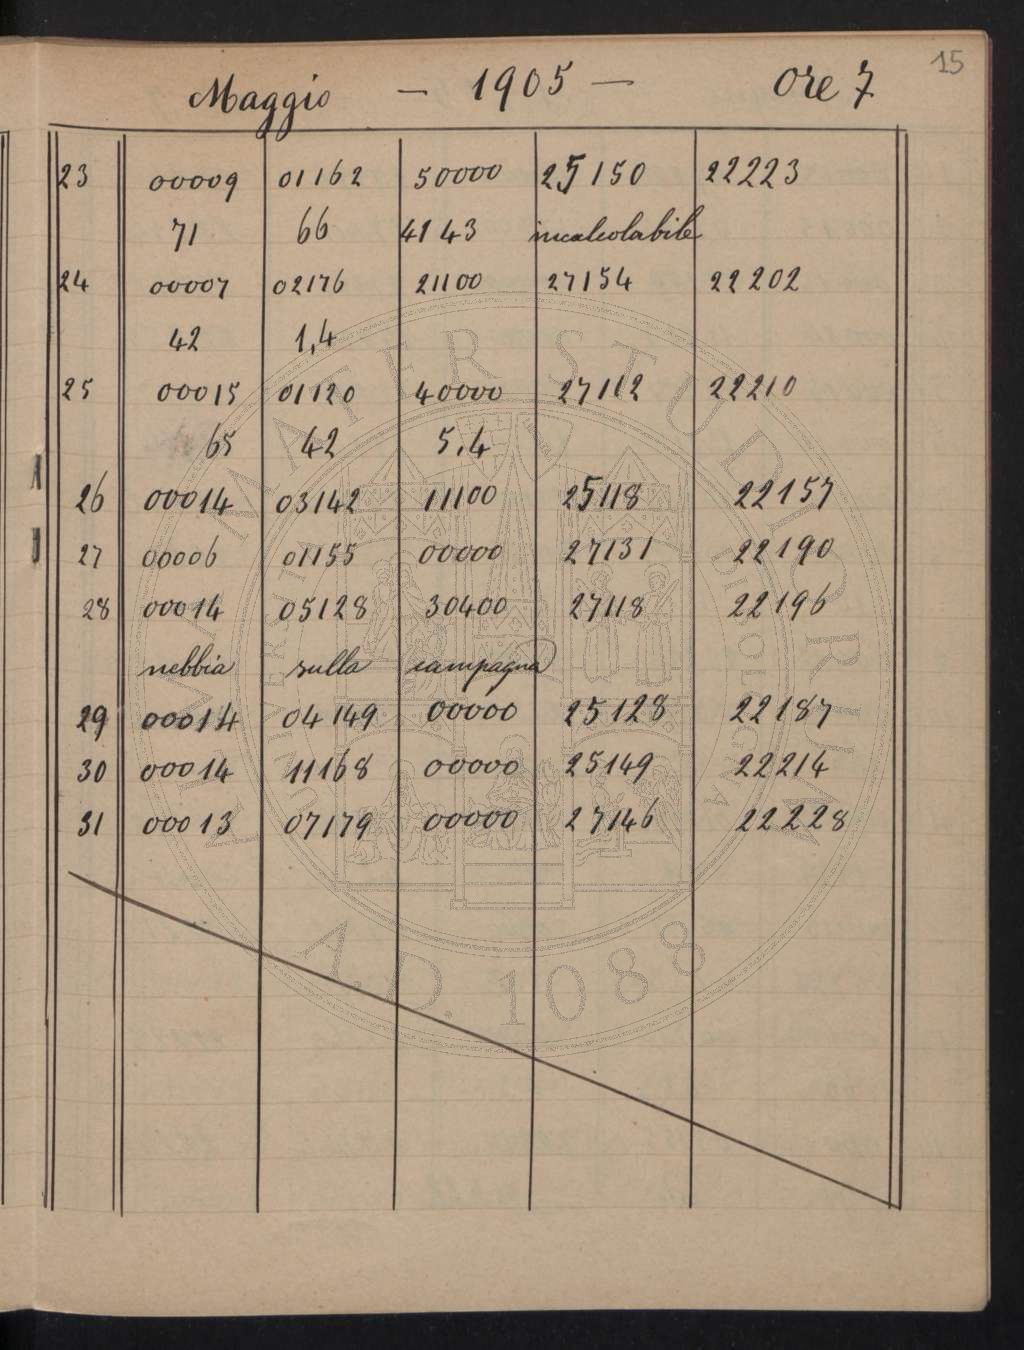 15
Maggio — 1905 — Ore 7
23 00009 01162 50000 25150 22223
71 66 4143 incalcolabile
24 00007 02176 21100 27154 22202
42 1,4
25 00015 01120 40000 27112 22210
65 42 5,4
26 00014 03142 11100 25118 22157
27 00006 01155 00000 27131 22190
28 00014 05128 30400 27118 22196
nebbia sulla campagna
29 00014 04149 00000 25128 22187
30 00014 11168 00000 25149 22214
31 00013 07179 00000 27146 22228
ALMA MATER STUDIORUM
A.D. 1088